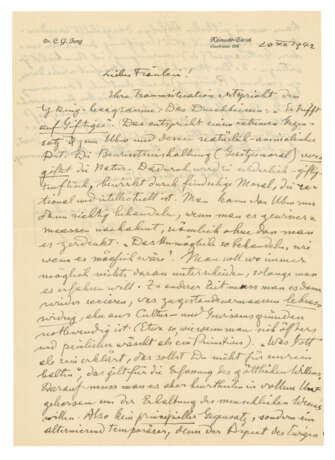 Dr. C. G. Jung
Küsnacht-Zürich
Seestrasse 228
20 XII 1942
Liebes Fräulein!
Ihre Traumsituation entspricht dem
Yi King-Hexagramm: Das Durchbeissen: "Er trifft
auf Giftiges". Das entspricht einem extremen Gegen-
satz zum Ubw und dessen natürlich-animalischer
Art. Die Bewusstseinshaltung (Geistmoral) ver-
giftet die Natur. Dadurch wird sie widerlich-giftig
bewirkt durch Moral, die ra-
tional und intellectuell ist. Man kann das Ubw nur
dann richtig behandeln, wenn man es
massen nachahmt, nämlich ohne dass man
es zerdenkt. "Das Unmögliche so behandeln, wie
wenn es möglich wäre! Man soll wo immer
möglich nichts daran unterscheiden, solange man
es erfahren will. Zu anderer Zeit muss man es dann
wieder was zugestandenermassen lebens-
widrig, aber aus Cultur- und Gewissensgründen
nothwendig ist. (Etwa so, wie wenn man sich öfters
und peinlicher wäscht als ein Primitiver). "Was Gott
als rein erklärt, das sollst Du nicht für unrein
halten", das gilt für die Erfassung des göttlichen Willens.
Darauf muss man es aber in vollem Un-
gehorsam um der Erhaltung des menschlichen Wesens
willen. Also kein principieller Gegensatz, sondern ein
alternierend temporärer, denn der Aspect des Ewigen